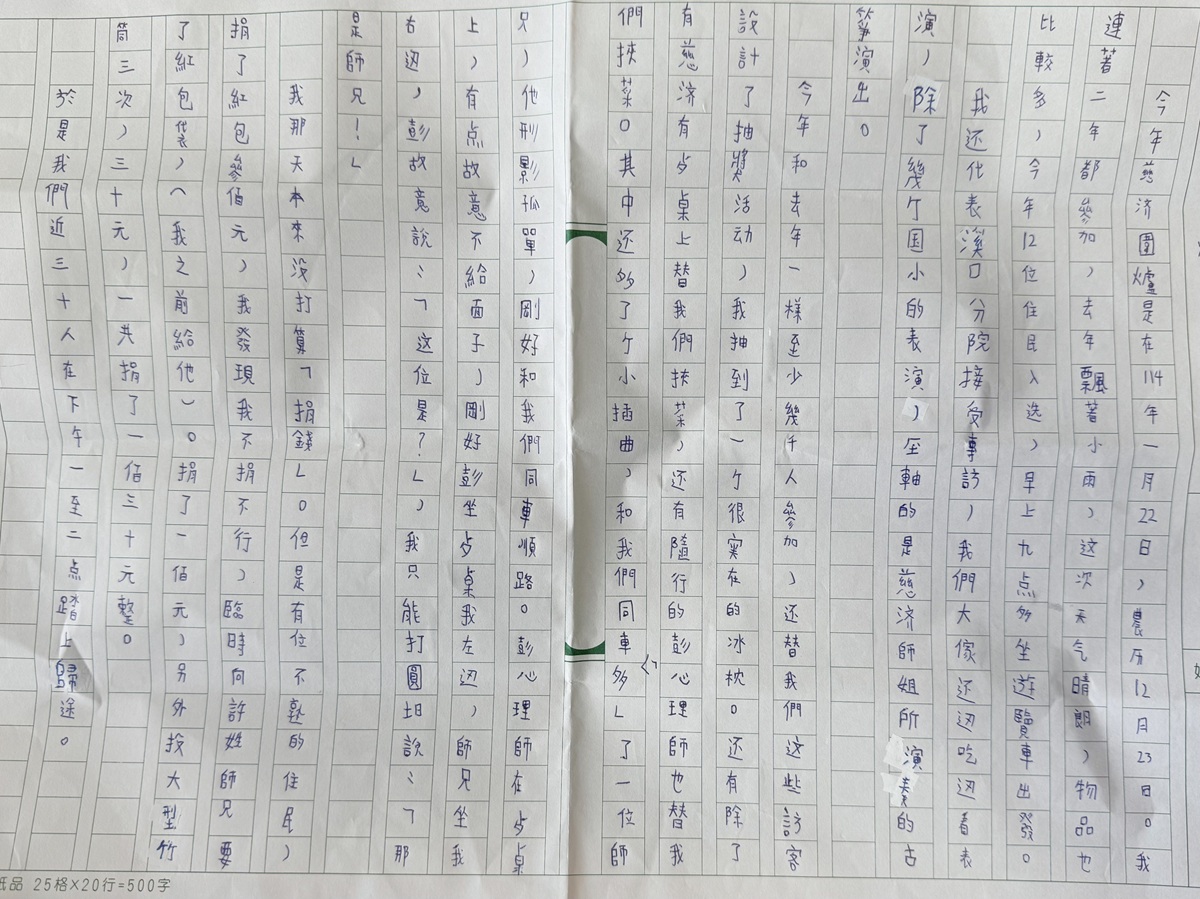 今年慈济圍爐是在114年一月22日，農历12月23日。我
連著二年都參加，去年飄著小雨，这次天气晴朗，物品也
比較多，今年12位住民入选，早上九点多坐遊覽車出發。
我还代表溪口分院接受專訪，我們大傢还边吃边看表
演，除了幾个国小的表演，压軸的是慈济師姐所演奏的古
箏演出。
今年和去年一樣至少幾千人參加，还替我們这些訪客
設計了抽獎活动，我抽到了一个很实在的冰枕。还有除了
有慈济有步桌上替我們挾菜，还有隨行的彭心理師也替我
們挾菜。其中还多了个小插曲，和我們同車多「了一位師
兄，他刑影孤單，剛好和我們同車順路。彭心理師在步桌
上，有点故意不給面子，剛好彭坐步桌我左边，師兄坐我
右边，彭故意說：「这位是？」，我只能打圓坦說：「那
是師兄！」
我那天本來没打算「捐錢」。但是有位不熟的住民，
捐了紅包參佰元，我發現我不捐不行，臨時向許姓師兄要
了紅包袋，（我之前給他）。捐了一佰元，另外投大型竹
筒三次，三十元，一共捐了一佰三十元整。
於是我們近三十人在下午一至二点踏上歸途。
紙品 25格×20行=500字